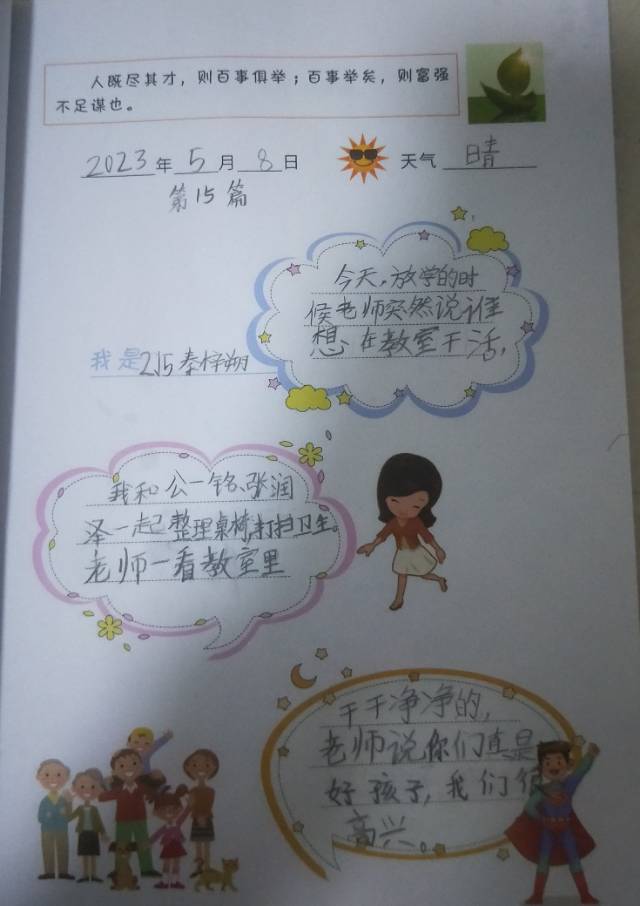 人既尽其才，则百事俱举；百事举矣，则富强
不足谋也。
2023年 5月 8日 天气 晴
第15篇
今天，放学的时
候老师突然说谁
想在教室干活，
我是215秦梓朔
我和公一铭、张润
泽一起整理桌椅，打扫卫生。
老师一看教室里
干干净净的，
老师说你们真是
好孩子，我们很
高兴。